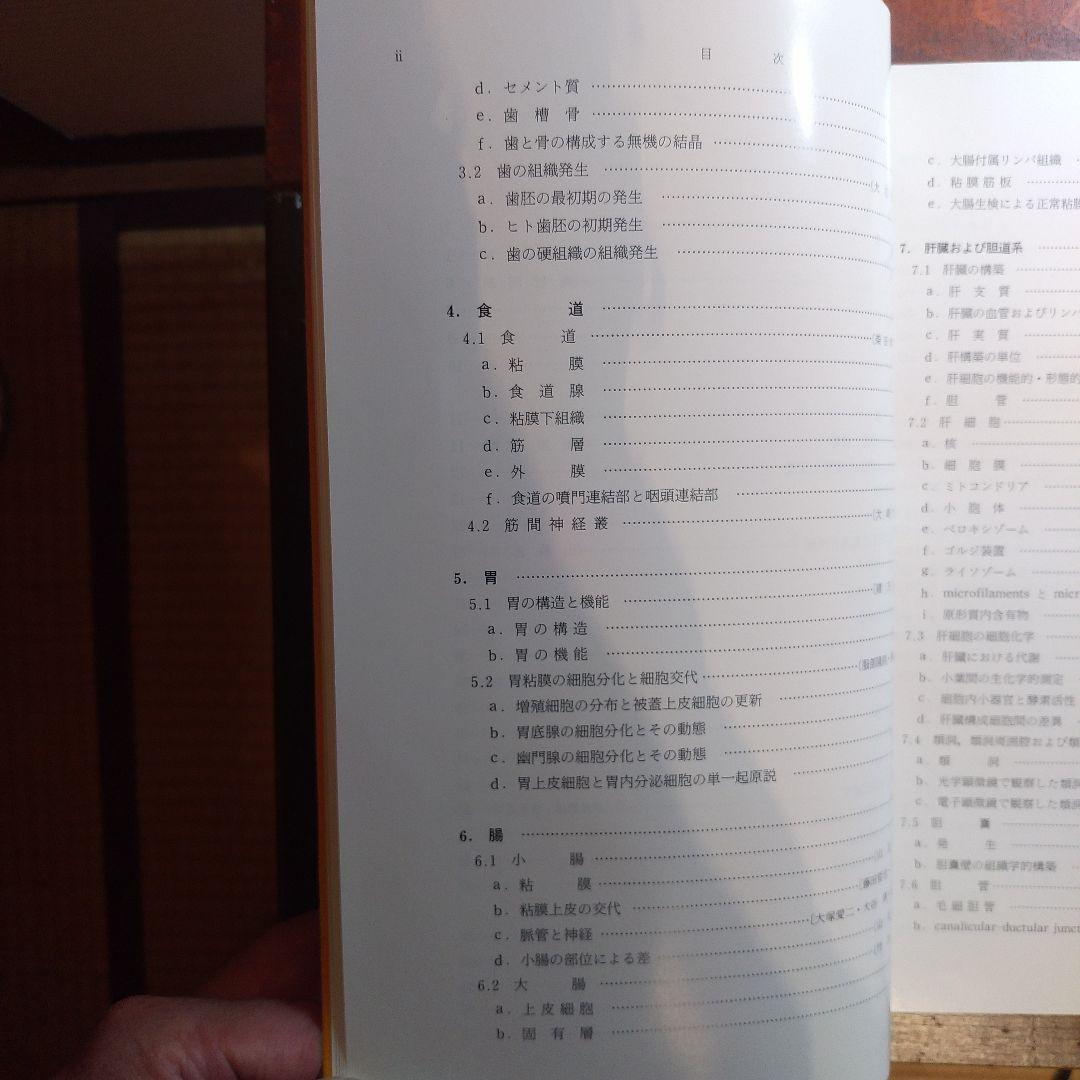 ii 目 次
d. セメント質
e. 歯 槽 骨
f. 歯と骨の構成する無機の結晶
3.2 歯の組織発生
a. 歯胚の最初期の発生
b. ヒト歯胚の初期発生
c. 歯の硬組織の組織発生
4. 食 道
4.1 食 道
a. 粘 膜
b. 食 道 腺
c. 粘膜下組織
d. 筋 層
e. 外 膜
f. 食道の噴門連結部と咽頭連結部
4.2 筋 間 神 経 叢
5. 胃
5.1 胃の構造と機能
a. 胃 の 構 造
b. 胃 の 機 能
5.2 胃粘膜の細胞分化と細胞交代
a. 増殖細胞の分布と被蓋上皮細胞の更新
b. 胃底腺の細胞分化とその動態
c. 幽門腺の細胞分化とその動態
d. 胃上皮細胞と胃内分泌細胞の単一起原説
6. 腸
6.1 小 腸
a. 粘 膜
b. 粘膜上皮の交代
c. 脈管と神経 〔大塚愛二・大谷
d. 小腸の部位による差
6.2 大 腸
a. 上 皮 細 胞
b. 固 有 層
c. 大腸付属リンパ組織
d. 粘 膜 筋 板
e. 大腸生検による正常粘膜
7. 肝臓および胆道系
7.1 肝臓の構築
a. 肝 支 質
b. 肝臓の血管およびリンパ
c. 肝 実 質
d. 肝構築の単位
e. 肝細胞の機能的・形態的
f. 胆 管
7.2 肝 細 胞
a. 核
b. 細 胞 膜
c. ミトコンドリア
d. 小 胞 体
e. ペロキシゾーム
f. ゴルジ装置
g. ライソゾーム
h. microfilaments と micr
i. 原形質内含有物
7.3 肝細胞の細胞化学
a. 肝臓における代謝
b. 小葉間の生化学的測定
c. 細胞内小器官と酵素活性
d. 肝臓構成細胞間の差異
7.4 類洞，類洞周囲腔および類
a. 類 洞
b. 光学顕微鏡で観察した類洞
c. 電子顕微鏡で観察した類洞
7.5 胆 嚢
a. 発 生
b. 胆嚢壁の組織学的構築
7.6 胆 管
a. 毛 細 胆 管
b. canalicular-ductular junct